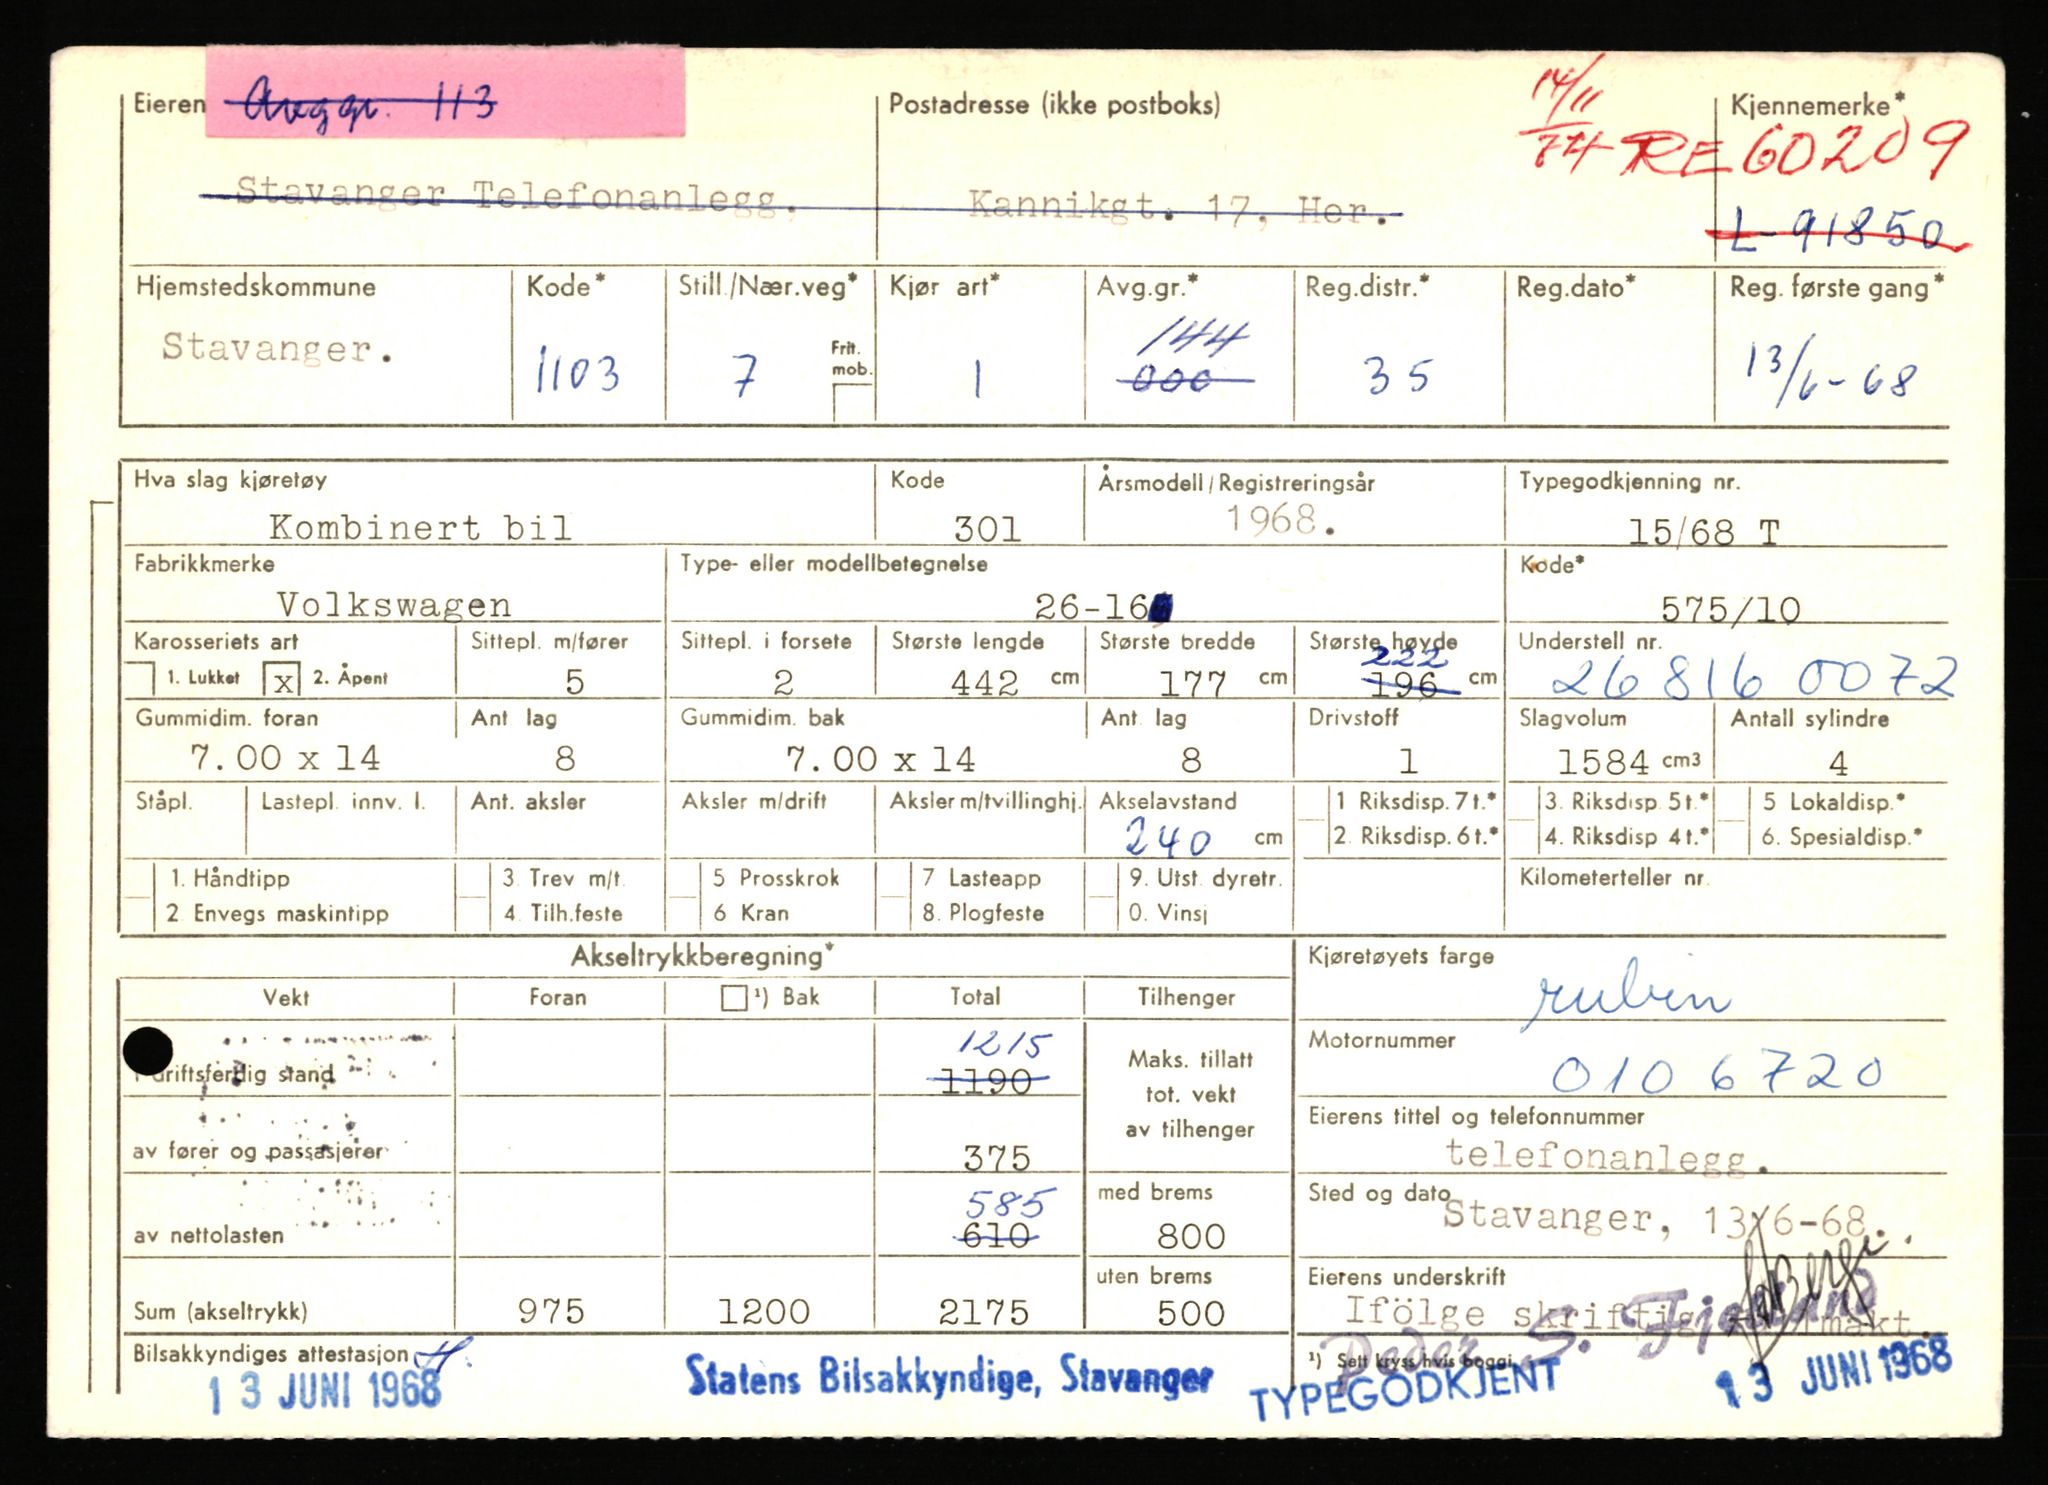 Avggr. 113
Eieren Postadresse (ikke postboks) 14/11 Kjennemerke*
74 RE 60209
Stavanger Telefonanlegg. Kannikgt. 17, Her.
L-91850
Hjemstedskommune Kode* Still./Nær.veg* Kjør art* Avg.gr.* Reg.distr.* Reg.dato* Reg. første gang*
144
Stavanger. 1103 7 Frit. mob. 1 000 35 13/6-68
Hva slag kjøretøy Kode Årsmodell/Registreringsår Typegodkjenning nr.
Kombinert bil 301 1968. 15/68 T
Fabrikkmerke Type- eller modellbetegnelse Kode*
Volkswagen 26-16 575/10
Karosseriets art Sittepl. m/fører Sittepl. i forsete Største lengde Største bredde Største høyde Understell nr.
222
1. Lukket x 2. Åpent 5 2 442 cm 177 cm 196 cm 268160072
Gummidim. foran Ant lag Gummidim. bak Ant. lag Drivstoff Slagvolum Antall sylindre
7.00 x 14 8 7.00 x 14 8 1 1584 cm3 4
Ståpl. Lastepl. innv. l. Ant. aksler Aksler m/drift Aksler m/tvillinghj. Akselavstand 1 Riksdisp. 7 t.* 3. Riksdisp. 5 t.* 5 Lokaldisp.*
240 cm 2. Riksdisp. 6 t.* 4. Riksdisp 4 t.* 6. Spesialdisp.*
1. Håndtipp 3. Trev m/t. 5 Prosskrok 7 Lasteapp 9. Utst. dyretr. Kilometerteller nr.
2 Envegs maskintipp 4. Tilh.feste 6 Kran 8. Plogfeste 0. Vinsj
Akseltrykkberegning* Kjøretøyets farge
Vekt Foran ¹) Bak Total Tilhenger rubin
1215
i driftsferdig stand 1190 Maks. tillatt tot. vekt av tilhenger Motornummer
0106720
Eierens tittel og telefonnummer
av fører og passasjerer 375 telefonanlegg.
585 med brems Sted og dato
av nettolasten 610 800 Stavanger, 13/6-68.
uten brems Eierens underskrift
Sum (akseltrykk) 975 1200 2175 500 Ifölge skriftlig
Peder S. Fjelland
Bilsakkyndiges attestasjon ¹) Sett kryss hvis boggi
13 JUNI 1968 Statens Bilsakkyndige, Stavanger TYPEGODKJENT 13 JUNI 1968